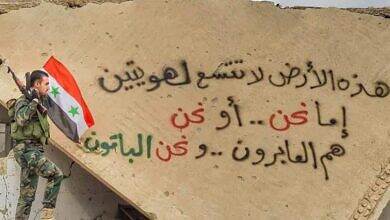 هذه الأرض لا تتسع لهويتين
إما نحن .. أو نحن
هم العابرون .. و نحن الباقون